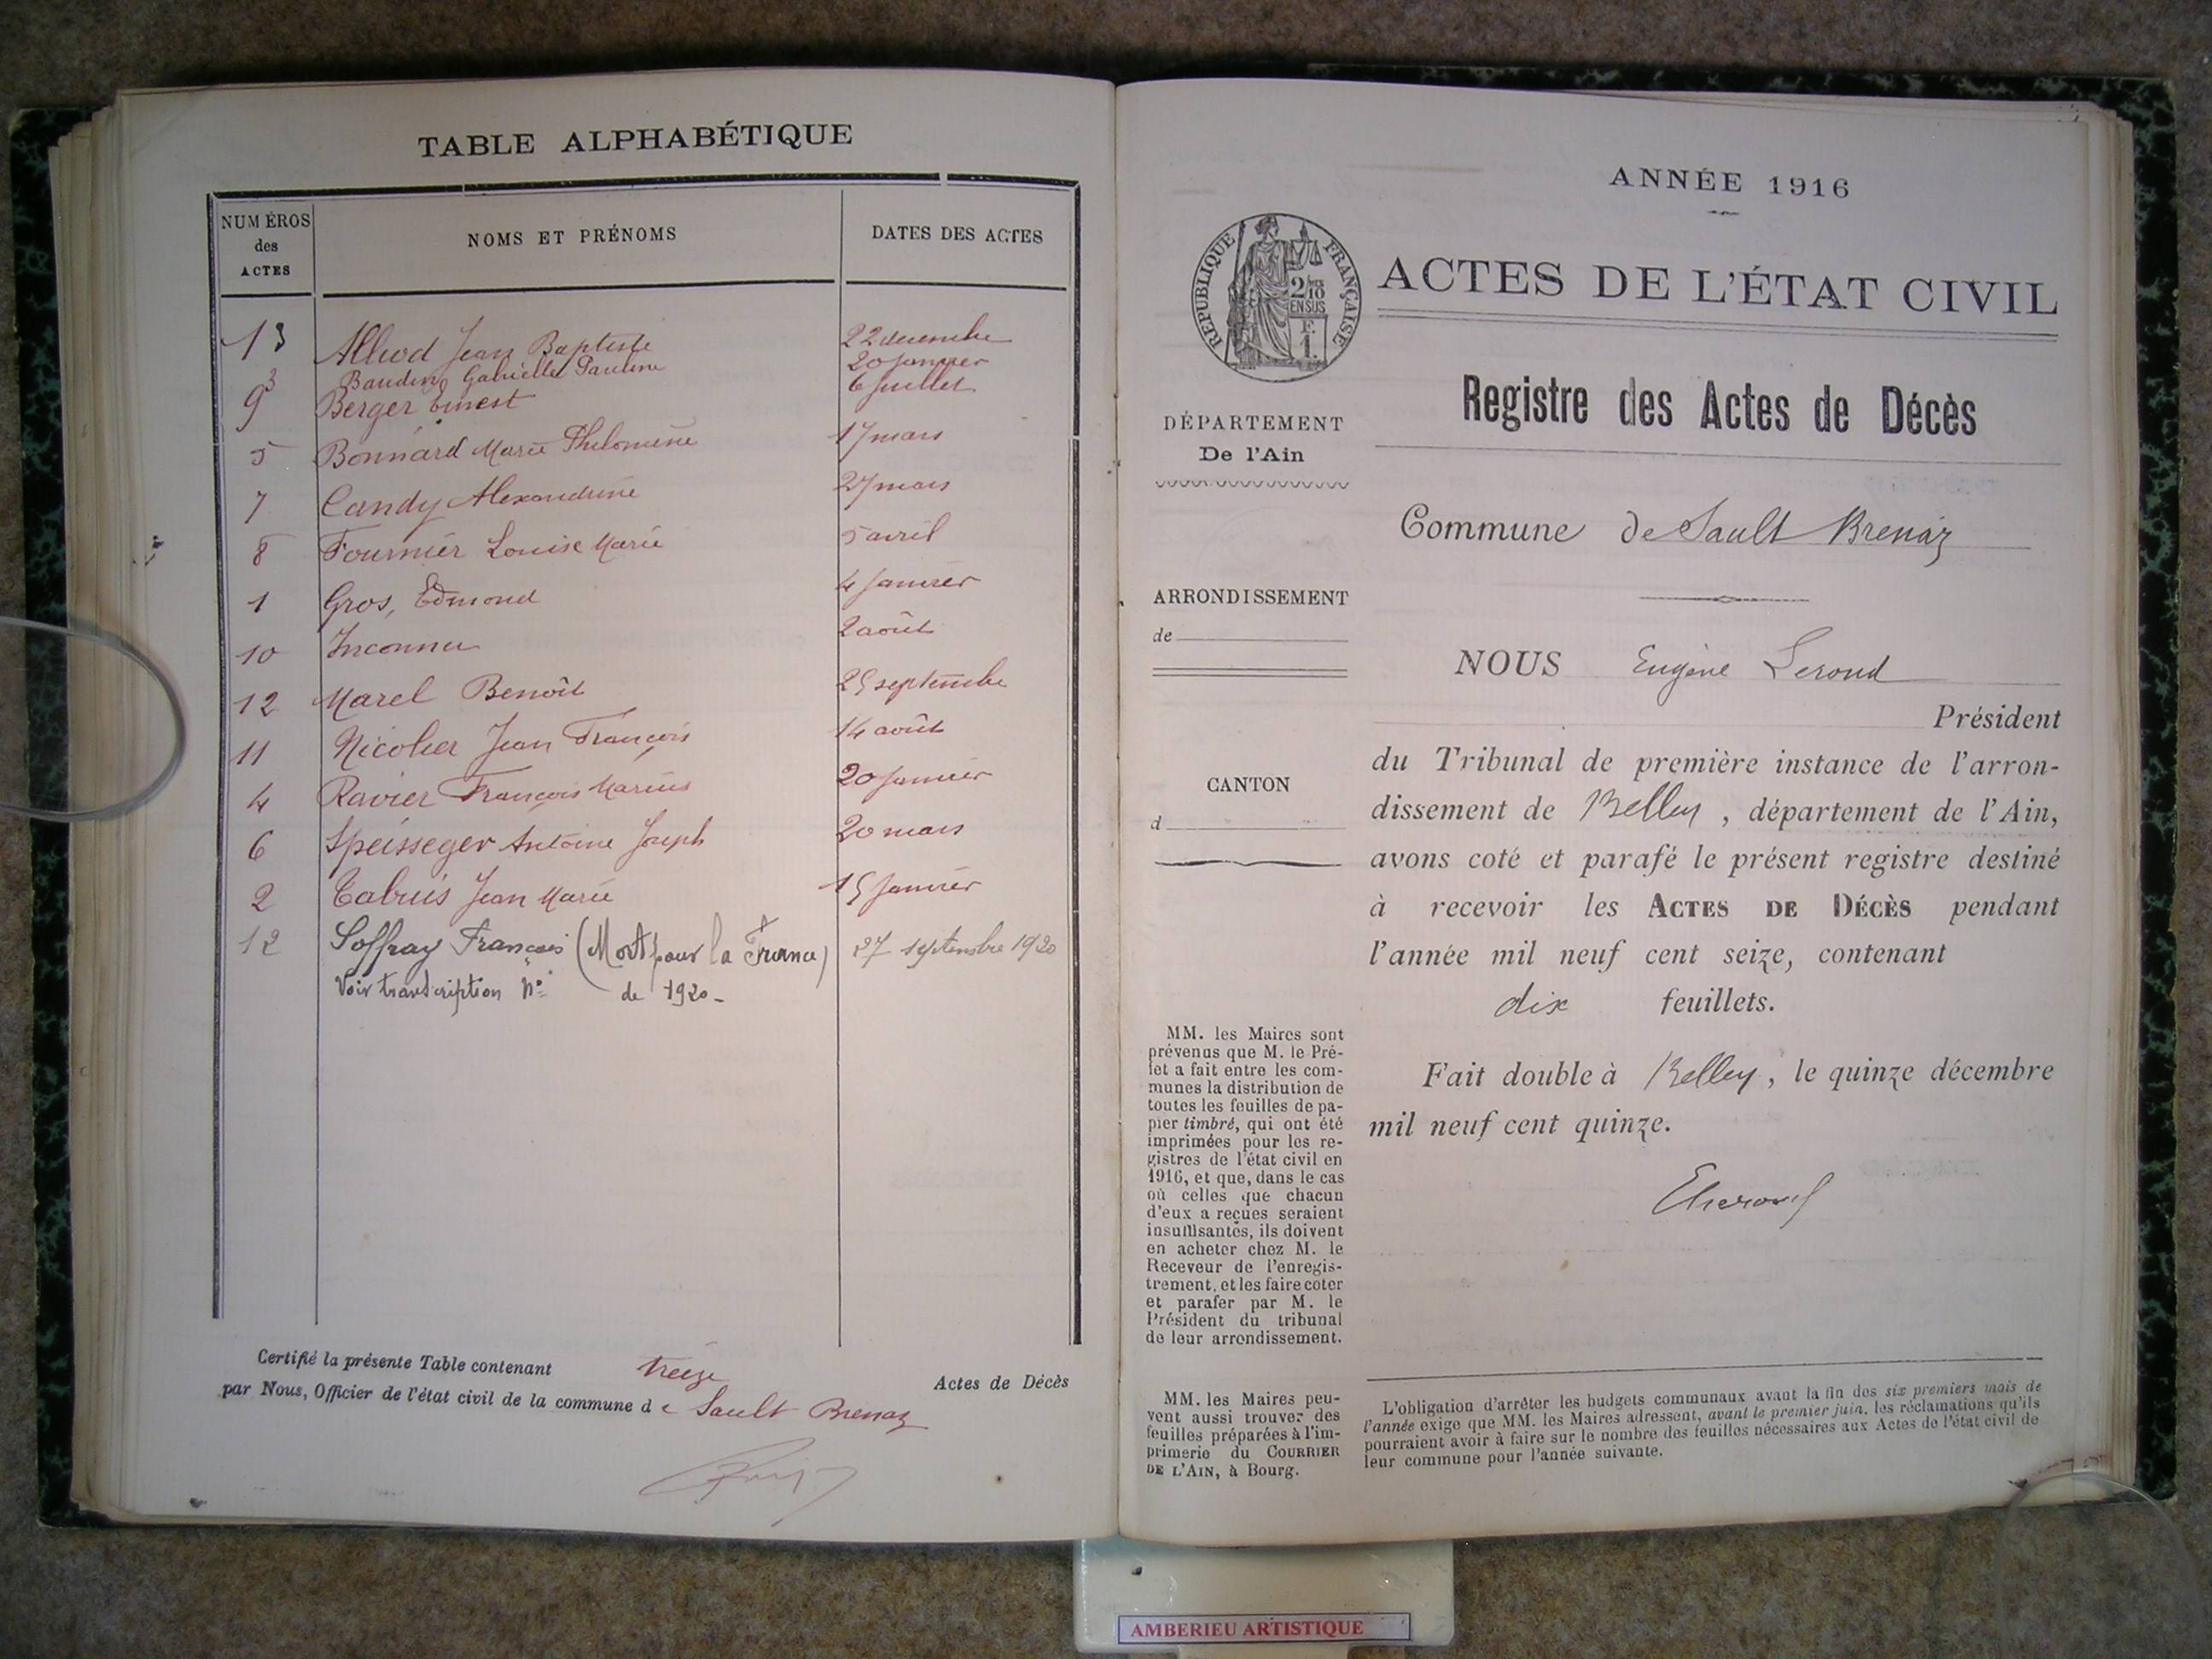 TABLE ALPHABÉTIQUE
NUMÉROS des ACTES
NOMS ET PRÉNOMS
DATES DES ACTES
13 Allusd Jean Baptiste 22 decembre
3 Baudin Gabrielle Pauline 20 Janvier
9 Berger Ernest 6 Juillet
5 Bonnard Marie Philomène 17 mars
7 Candy Alexandrine 27 mars
8 Fournier Louise Marie 5 avril
1 Gros, Edmond 4 Janvier
10 Inconnu 2 août
12 Marel Benoît 25 septembre
11 Nicolier Jean François 14 août
4 Ravier François Marius 20 Janvier
6 Speisseger Antoine Joseph 20 mars
2 Cabuis Jean Marie 15 Janvier
12 Soffray François (Mort pour la France) 27 septembre 1920
Voir transcription N° de 1920-
Certifié la présente Table contenant treize Actes de Décès
par Nous, Officier de l'état civil de la commune de Sault Brenaz
ANNÉE 1916
RÉPUBLIQUE FRANÇAISE
2/10
EN SUS
F.
1.
ACTES DE L'ÉTAT CIVIL
Registre des Actes de Décès
DÉPARTEMENT
De l'Ain
Commune de Sault Brenaz
ARRONDISSEMENT
de
NOUS Eugène Leroud
Président
CANTON
d
du Tribunal de première instance de l'arron-
dissement de Belley, département de l'Ain,
avons coté et parafé le présent registre destiné
à recevoir les ACTES DE DÉCÈS pendant
l'année mil neuf cent seize, contenant
dix feuillets.
Fait double à Belley, le quinze décembre
mil neuf cent quinze.
MM. les Maires sont
prévenus que M. le Pré-
fet a fait entre les com-
munes la distribution de
toutes les feuilles de pa-
pier timbré, qui ont été
imprimées pour les re-
gistres de l'état civil en
1916, et que, dans le cas
où celles que chacun
d'eux a reçues seraient
insuffisantes, ils doivent
en acheter chez M. le
Receveur de l'enregis-
trement, et les faire coter
et parafer par M. le
Président du tribunal
de leur arrondissement.
MM. les Maires peu-
vent aussi trouver des
feuilles préparées à l'im-
primerie du COURRIER
DE L'AIN, à Bourg.
L'obligation d'arrêter les budgets communaux avant la fin des six premiers mois de
l'année exige que MM. les Maires adressent, avant le premier juin, les réclamations qu'ils
pourraient avoir à faire sur le nombre des feuilles nécessaires aux Actes de l'état civil de
leur commune pour l'année suivante.
AMBERIEU ARTISTIQUE